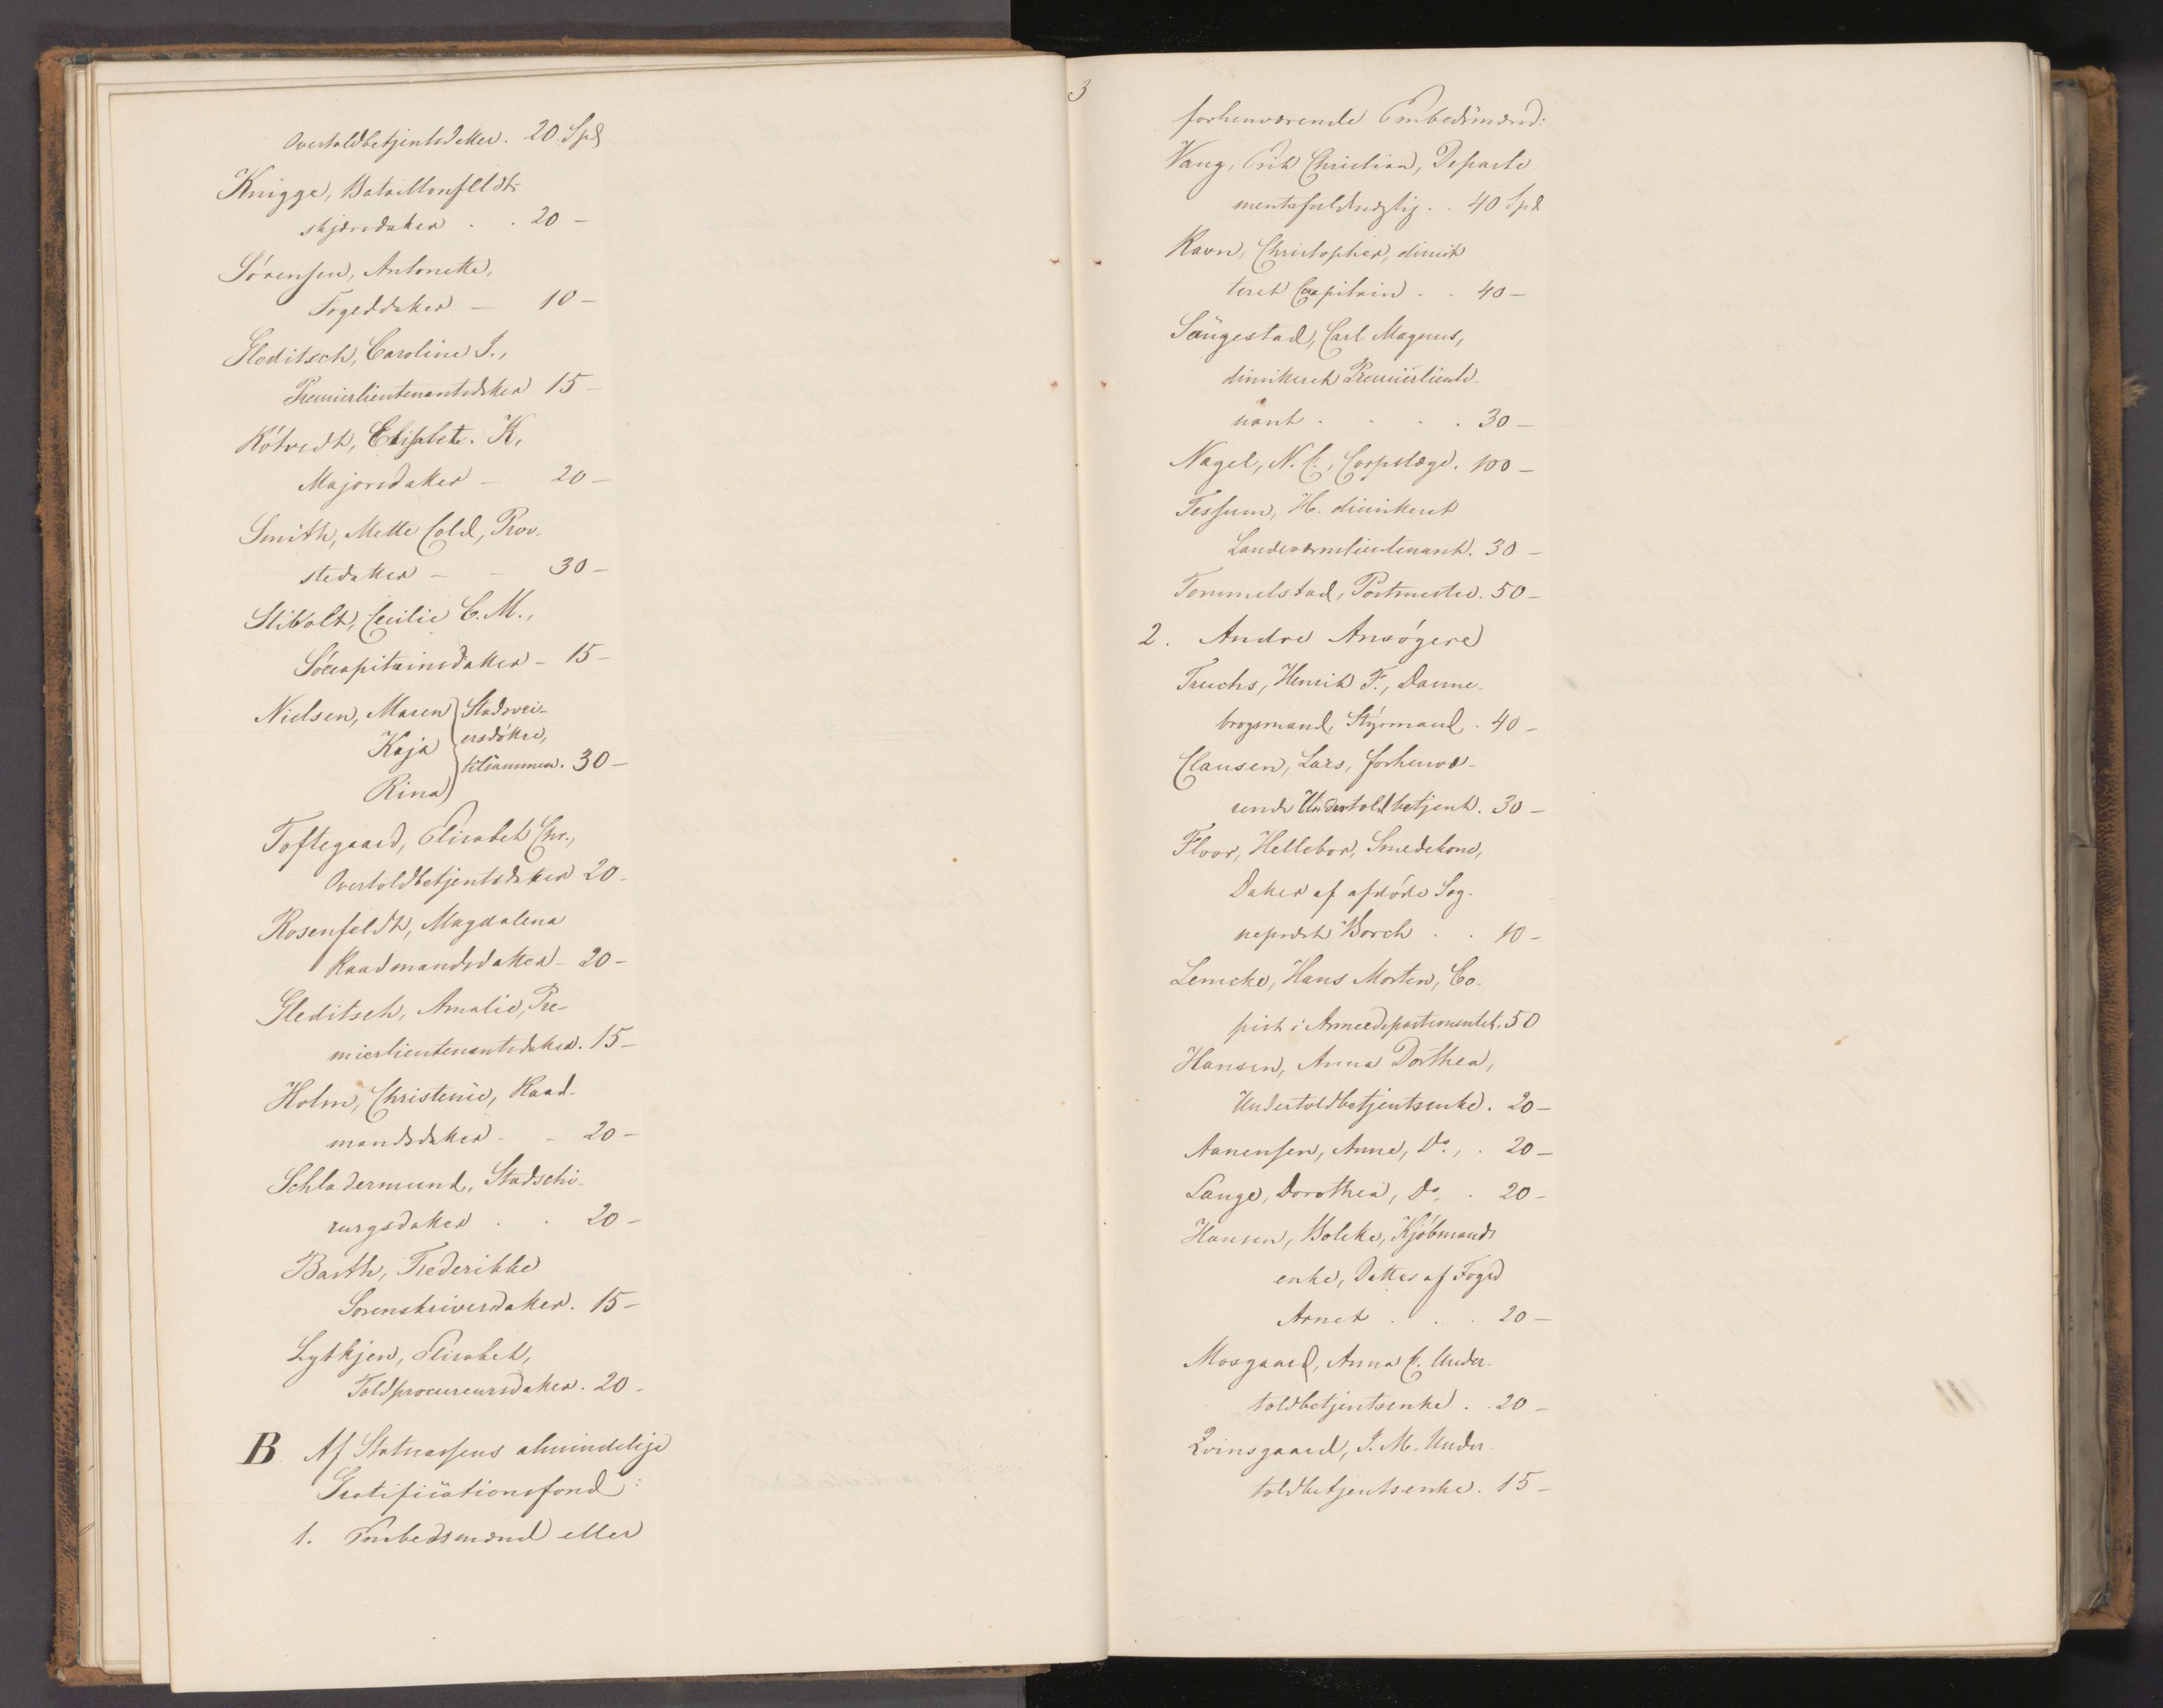 Overtoldbetjentsdatter. 20 Spd
Knigge, Bataillonsfeldt-
skjærsdatter . . 20 -
Sörensen, Antonette,
Fogeddatter - 10 -
Gleditsch, Caroline J.,
Premierlieutenantsdatter 15 -
Rötvedt, Elisabet. K,
Majorsdatter - 20 -
Smith, Mette Cold, Prov-
stedatter - - 30 -
Stibolt, Cecilie C. M.,
Söcapitainsdatter - 15 -
Nielsen, Maren Stadsvei-
Kaja ersdöttre,
tilsammen. 30 -
Rina
Toftegaard, Elisabeth Chr.,
Overtoldbetjentsdatter 20 -
Rosenfeldt, Magdalena
Raadmandsdatter - 20 -
Gleditsch, Amalie, Pre-
mierlieutenantsdatter. 15 -
Holm, Christence, Raad-
mandsdatter - - 20 -
Schladermund, Stadschi-
rurgsdatter . . 20 -
Barth, Frederikke
Sorenskriverdatter. 15 -
Lytkjen, Elisabet,
Toldprocureursdatter. 20 -
B. Af Statcassens almindelige
Gratificationsfond:
1. Embedsmænd eller
3
forhenværende Embedsmænd:
Vang, Erik Christian, Departe-
mentsfuldmægtig . . 40 Spd
Ravn, Christopher, dimit-
teret Capitain . . 40 -
Saugestad, Carl Magnus,
dimitteret Premierlieute-
nant . . . . 30 -
Nagel, N. C., Corpslæge. 100 -
Tessum, H. dimitteret
Landeværnslieutenant. 30 -
Tommelstad, Postmester. 50 -
2. Andre Ansögere
Fuchs, Henrik F., Danne-
brogsmand, Styrmand . 40 -
Clausen, Lars, forhenvæ-
rende Undertoldbetjent. 30 -
Floor, Hellebor, Smedekone,
Datter af afdöde Sog-
nepræst Borch . . 10 -
Lemcke, Hans Morten, Co-
pist i Armeedepartementet. 50
Hansen, Anna Dorthea,
Undertoldbetjentsenke. 20 -
Aanensen, Anne, Do., . 20 -
Lange, Dorothea, Do. . 20 -
Hansen, Bolette, Kjöbmands
enke, Datter af Foged
Arnet . . . 20 -
Mosgaard, Anna C. Under-
toldbetjentsenke . . 20 -
Qvinsgaard, J. M. Under-
toldbetjentsenke. 15 -